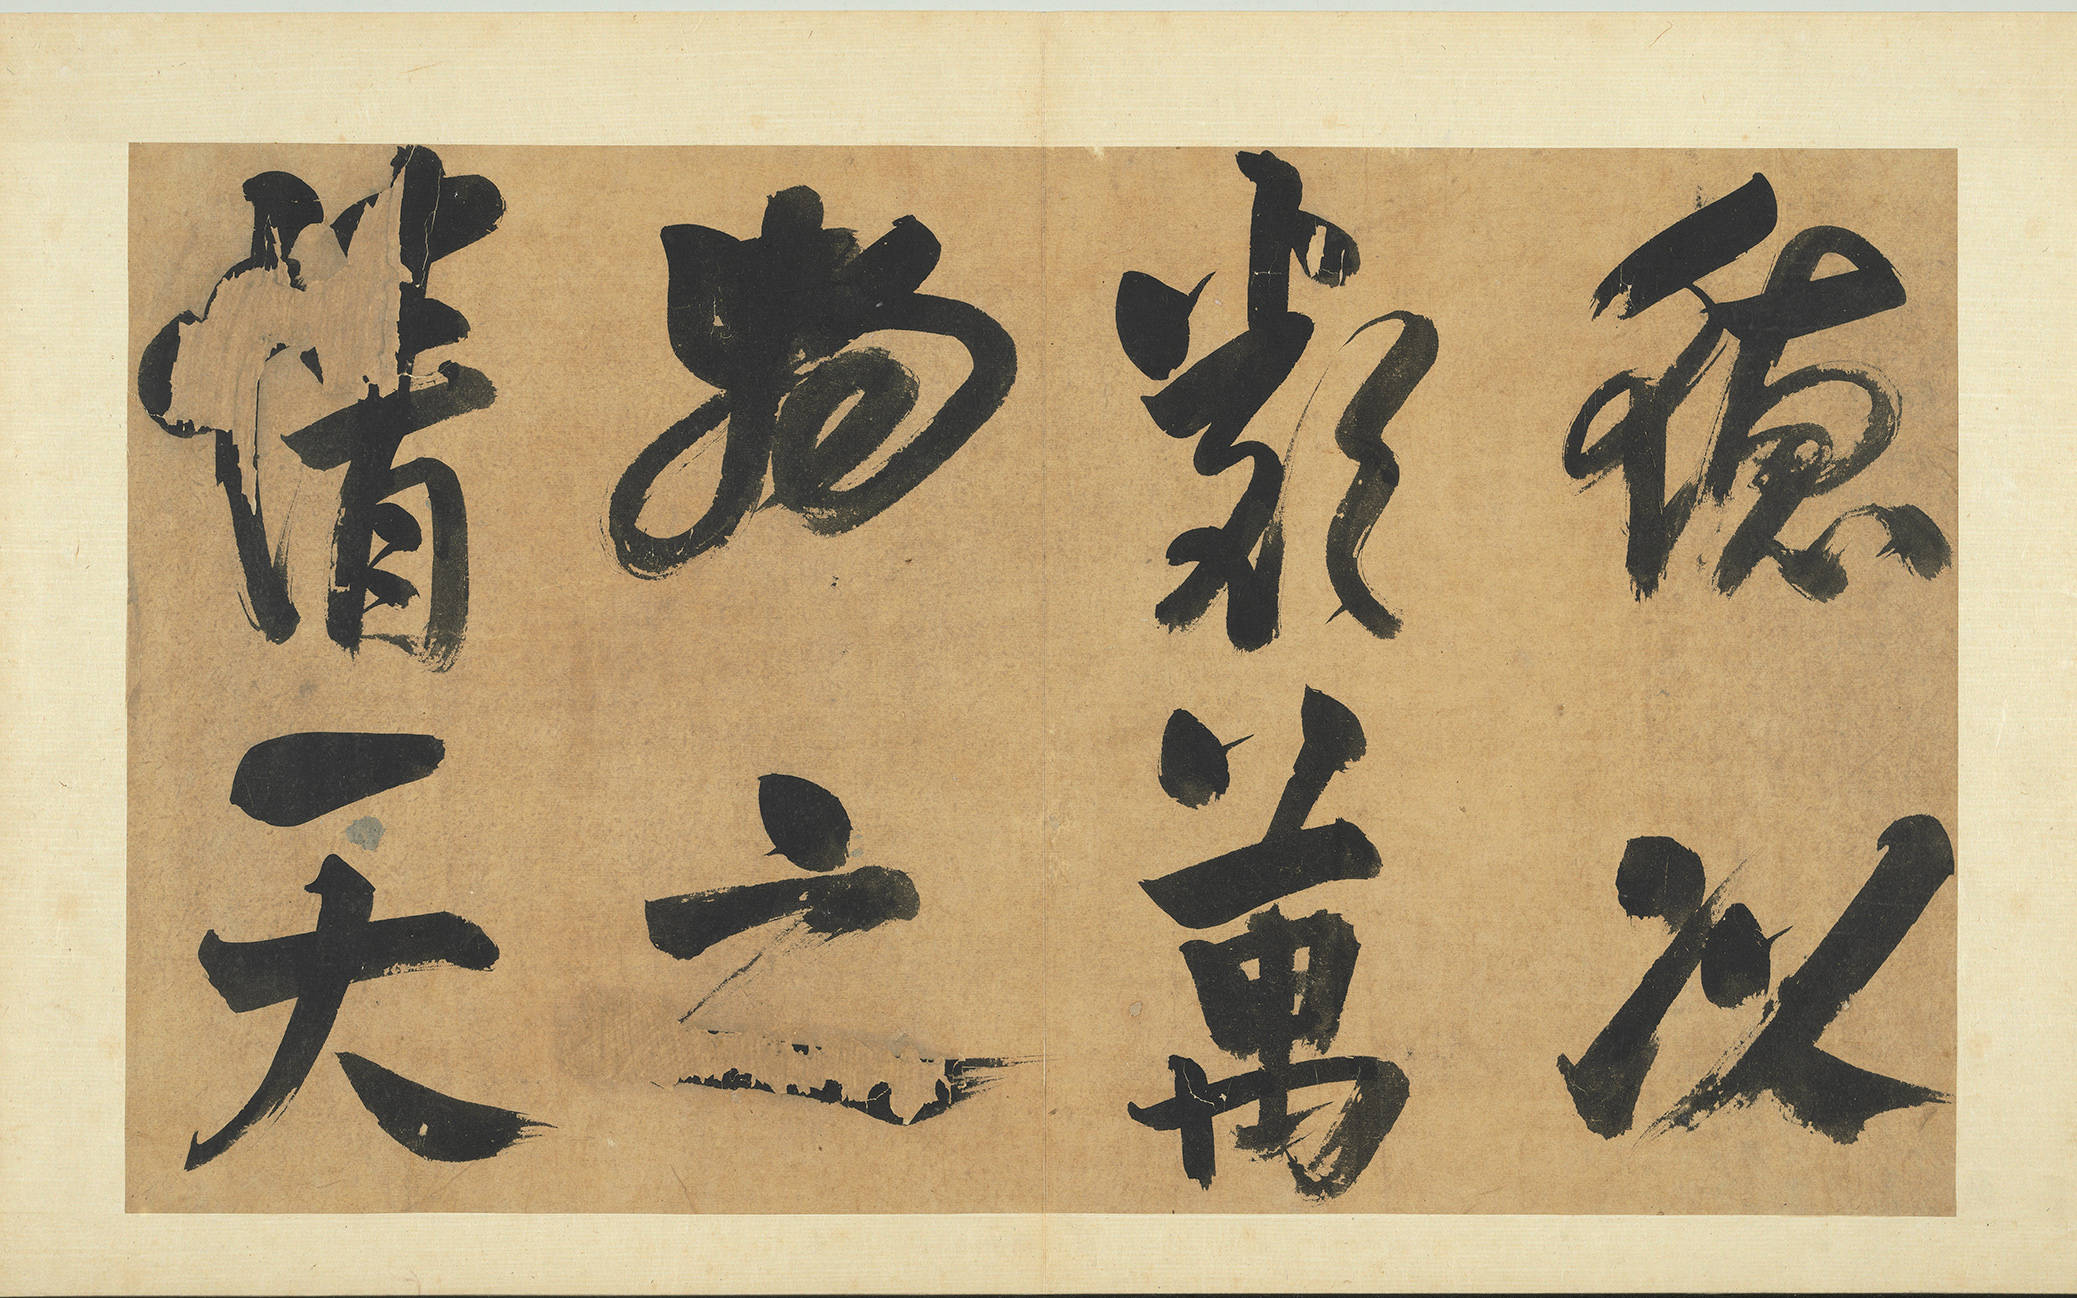 德以
類萬
物之
情一天